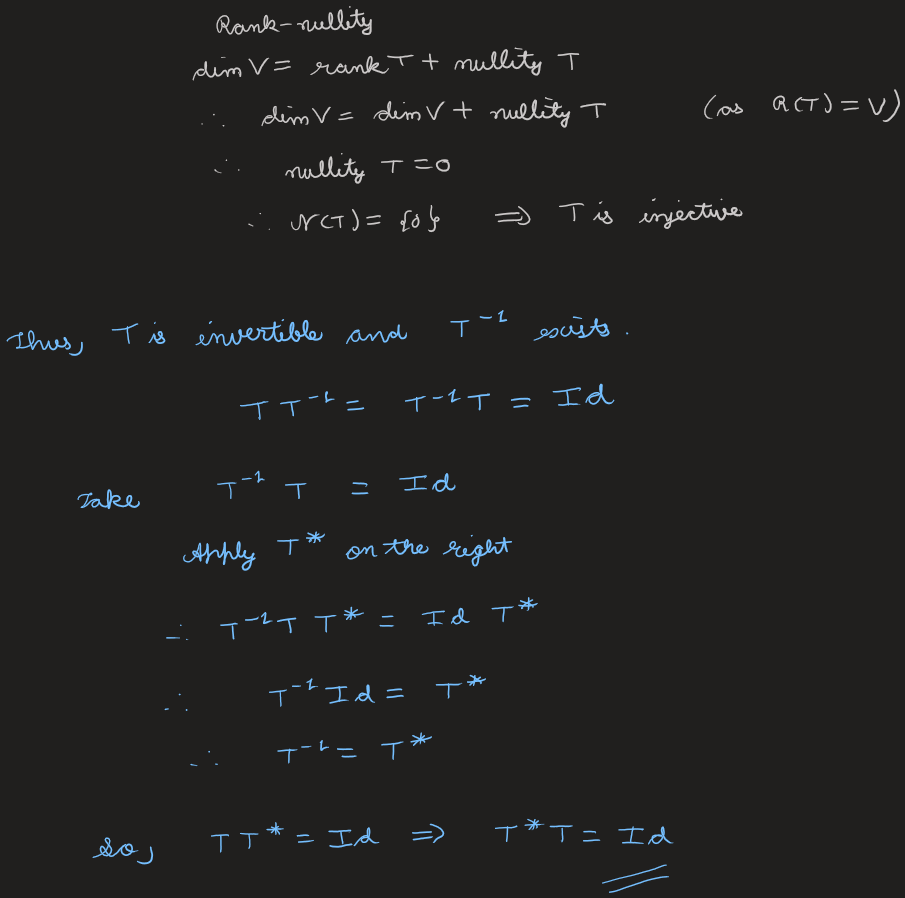 Rank-nullity
dim V = rank T + nullity T
∴ dim V = dim V + nullity T (as R(T) = V)
∴ nullity T = 0
∴ N(T) = {0} ⇒ T is injective
Thus, T is invertible and T⁻¹ exists.
T T⁻¹ = T⁻¹ T = Id
Take T⁻¹ T = Id
Apply T* on the right
∴ T⁻¹ T T* = Id T*
∴ T⁻¹ Id = T*
∴ T⁻¹ = T*
So, T T* = Id ⇒ T* T = Id